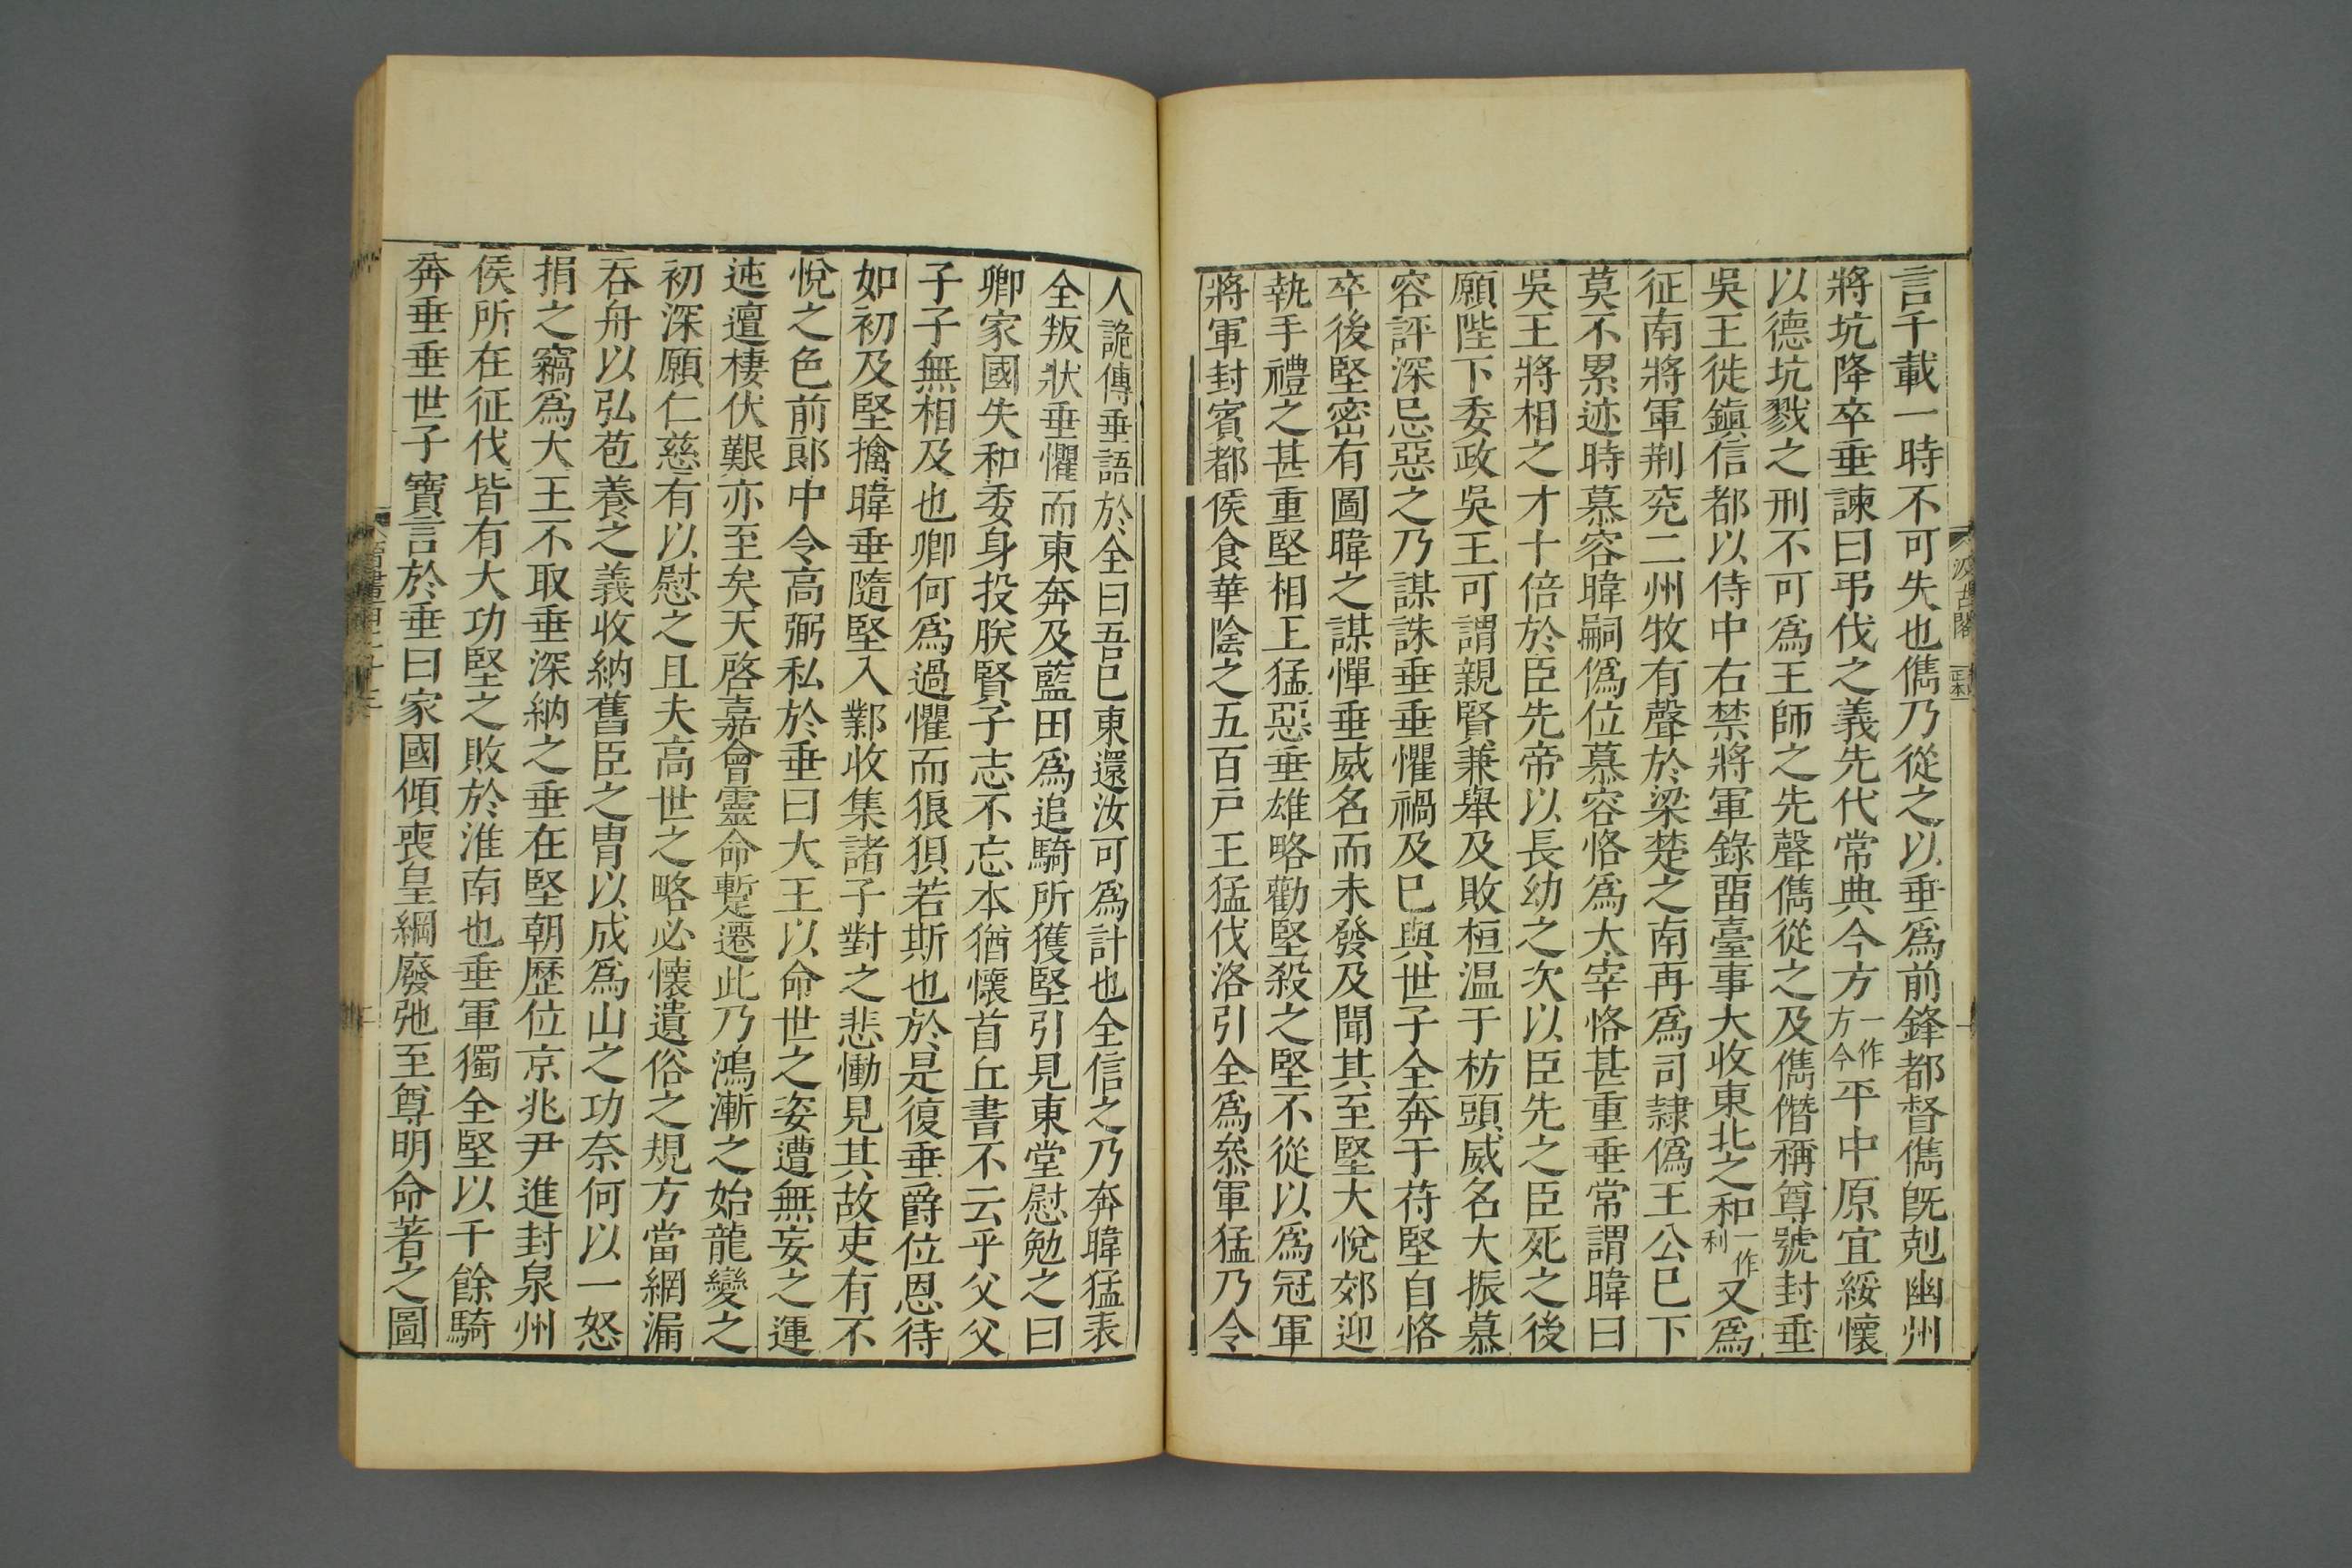 言千載一時不可失也儁乃從之以垂爲前鋒都督儁旣剋幽州
將坑降卒垂諫曰弔伐之義先代常典今方一作方今平中原宜綏懷
以德坑戮之刑不可爲王師之先聲儁從之及儁僭稱尊號封垂
吳王徙鎭信都以侍中右禁將軍錄畱臺事大收東北之和一作利又爲
征南將軍荆兖二州牧有聲於梁楚之南再爲司隷僞王公已下
莫不累迹時慕容暐嗣僞位慕容恪爲太宰恪甚重垂常謂暐曰
吳王將相之才十倍於臣先帝以長幼之次以臣先之臣死之後
願陛下委政吳王可謂親賢兼舉及敗桓温于枋頭威名大振慕
容評深忌惡之乃謀誅垂垂懼禍及已與世子全奔于苻堅自恪
卒後堅密有圖暐之謀憚垂威名而未發及聞其至堅大悅郊迎
執手禮之甚重堅相王猛惡垂雄略勸堅殺之堅不從以爲冠軍
將軍封賓都侯食華陰之五百戸王猛伐洛引全爲叅軍猛乃令
人詭傳垂語於全曰吾已東還汝可爲計也全信之乃奔暐猛表
全叛狀垂懼而東奔及藍田爲追騎所獲堅引見東堂慰勉之曰
卿家國失和委身投朕賢子志不忘本猶懷首丘書不云乎父父
子子無相及也卿何爲過懼而狼狽若斯也於是復垂爵位恩待
如初及堅擒暐垂隨堅入鄴收集諸子對之悲慟見其故吏有不
悅之色前郎中令高弼私於垂曰大王以命世之姿遭無妄之運
迍邅棲伏艱亦至矣天啓嘉會靈命暫遷此乃鴻漸之始龍變之
初深願仁慈有以慰之且夫高世之略必懷遺俗之規方當網漏
吞舟以弘苞養之義收納舊臣之冑以成爲山之功奈何以一怒
捐之竊爲大王不取垂深納之垂在堅朝歷位京兆尹進封泉州
侯所在征伐皆有大功堅之敗於淮南也垂軍獨全堅以千餘騎
奔垂垂世子寶言於垂曰家國傾喪皇綱廢弛至尊明命著之圖
汲古閣
正本